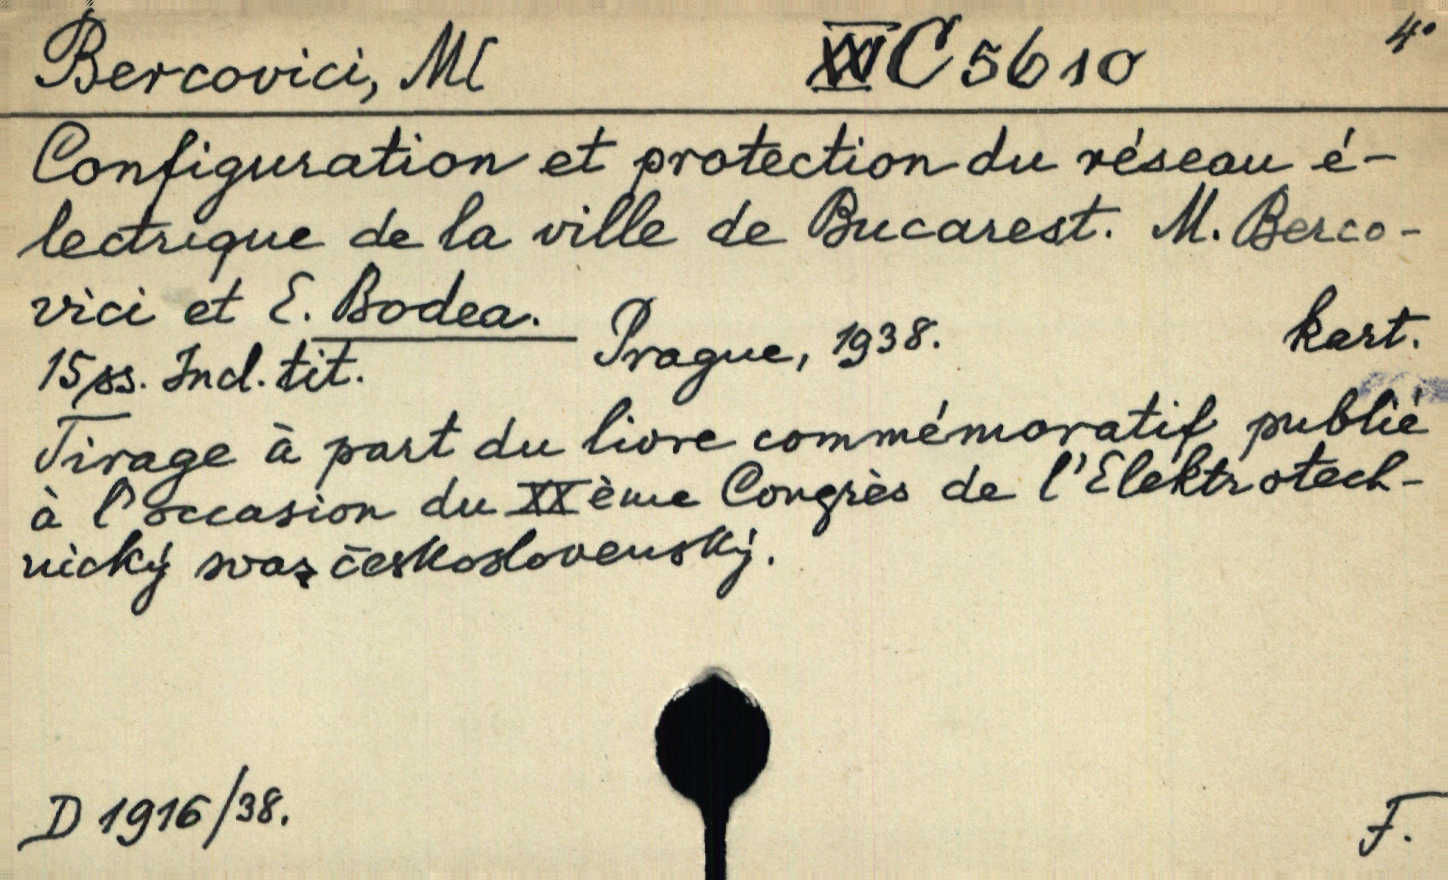 Bercovici, M[ XVI C 5610 4°
Configuration et protection du réseau é-
lectrique de la ville de Bucarest. M. Berco-
vici et E. Bodea. Prague, 1938. kart.
15 ss. Incl. tit.
Tirage à part du livre commémoratif publié
à l'occasion du XXème Congrès de l'Elektrotech-
nický svaz československý.
D 1916/38. F.